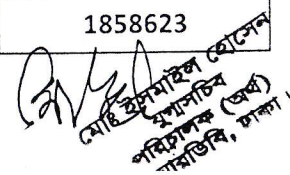 1858623
মোঃ ইসমাইল হোসেন
যুগ্মসচিব
পরিচালক (অর্থ)
বারডিবি, ঢাকা।